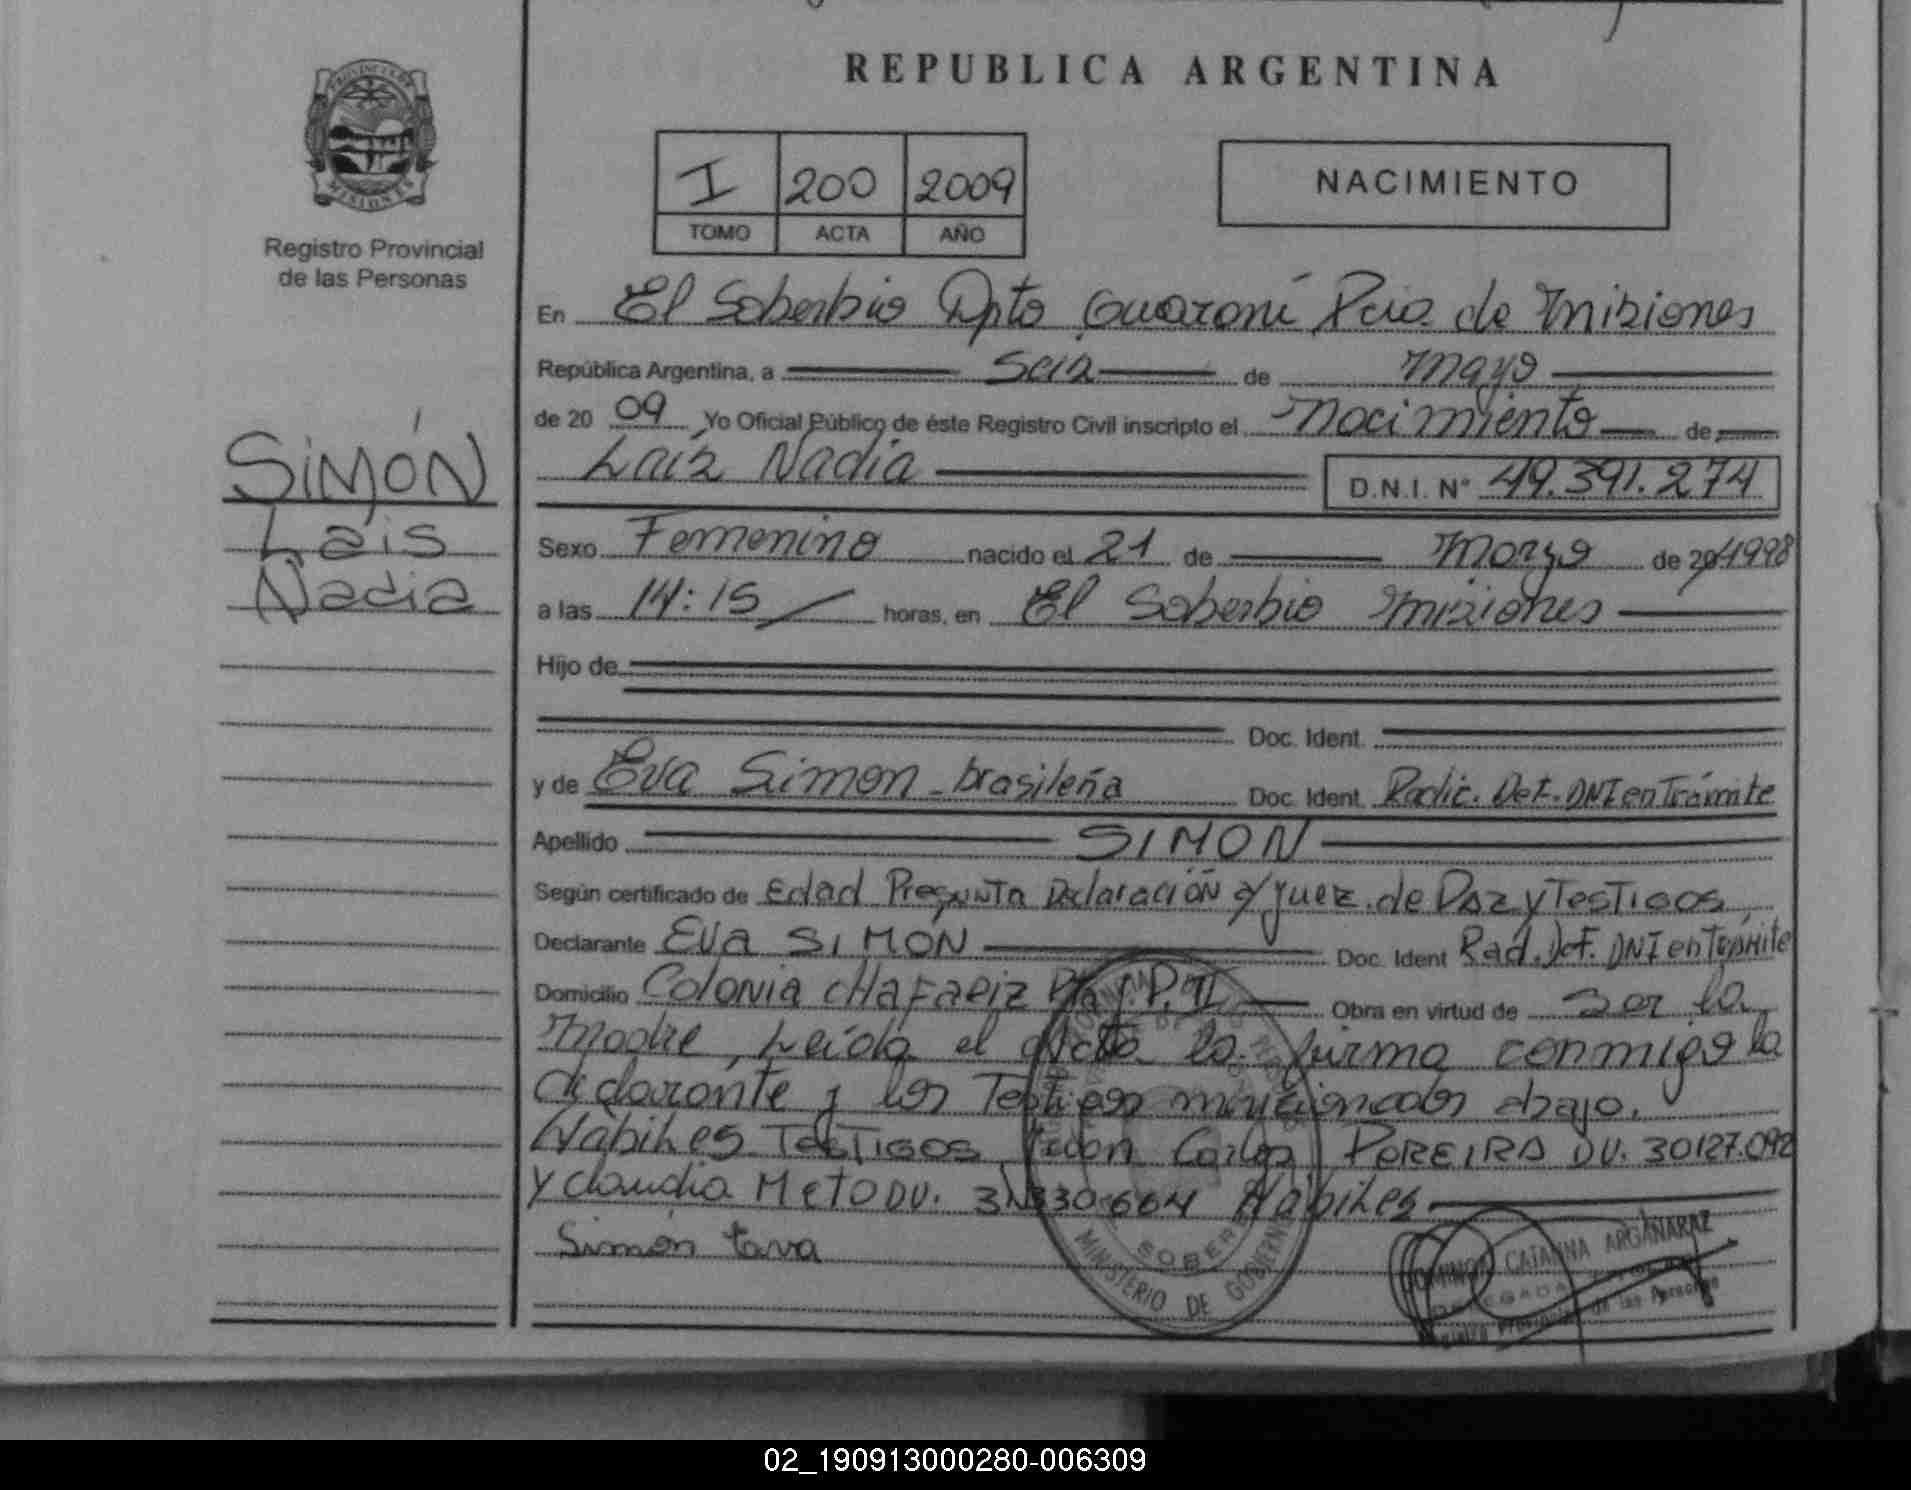 REPUBLICA ARGENTINA
PROVINCIA DE
MISIONES
Registro Provincial
de las Personas
I 200 2009
TOMO ACTA AÑO
NACIMIENTO
En El Soberbio Dpto Guaraní Pcia. de Misiones
República Argentina, a seis de mayo
de 20 09 Yo Oficial Público de éste Registro Civil inscripto el Nacimiento de
Laís Nadia D.N.I. N° 49.391.274
SIMÓN
Laís
Nadia
Sexo Femenino nacido el 21 de Marzo de 20 1998
a las 14:15 horas, en El Soberbio Misiones
Hijo de
Doc. Ident.
y de Eva Simon - brasileña Doc. Ident. Radic. Def. DNI en Trámite
Apellido SIMON
Según certificado de Edad Presunta Declaración y Juez de Paz y Testigos
Declarante Eva SIMÓN Doc. Ident Rad. Def. DNI en Trámite
Domicilio Colonia Chafariz Obra en virtud de ser la
Madre, Leída el Acta la firma conmigo la
declarante y los Testigos mencionados abajo.
Habiles Testigos Juan Carlos PEREIRA DU. 30127.092
y Claudia Meto DU. 330.664 Habiles
Simón
SOBERBIO
MINISTERIO DE GOBIERNO
DOMINGA CATALINA ARGAÑARAZ
DELEGADA
Registro Provincial de las Personas
02_190913000280-006309